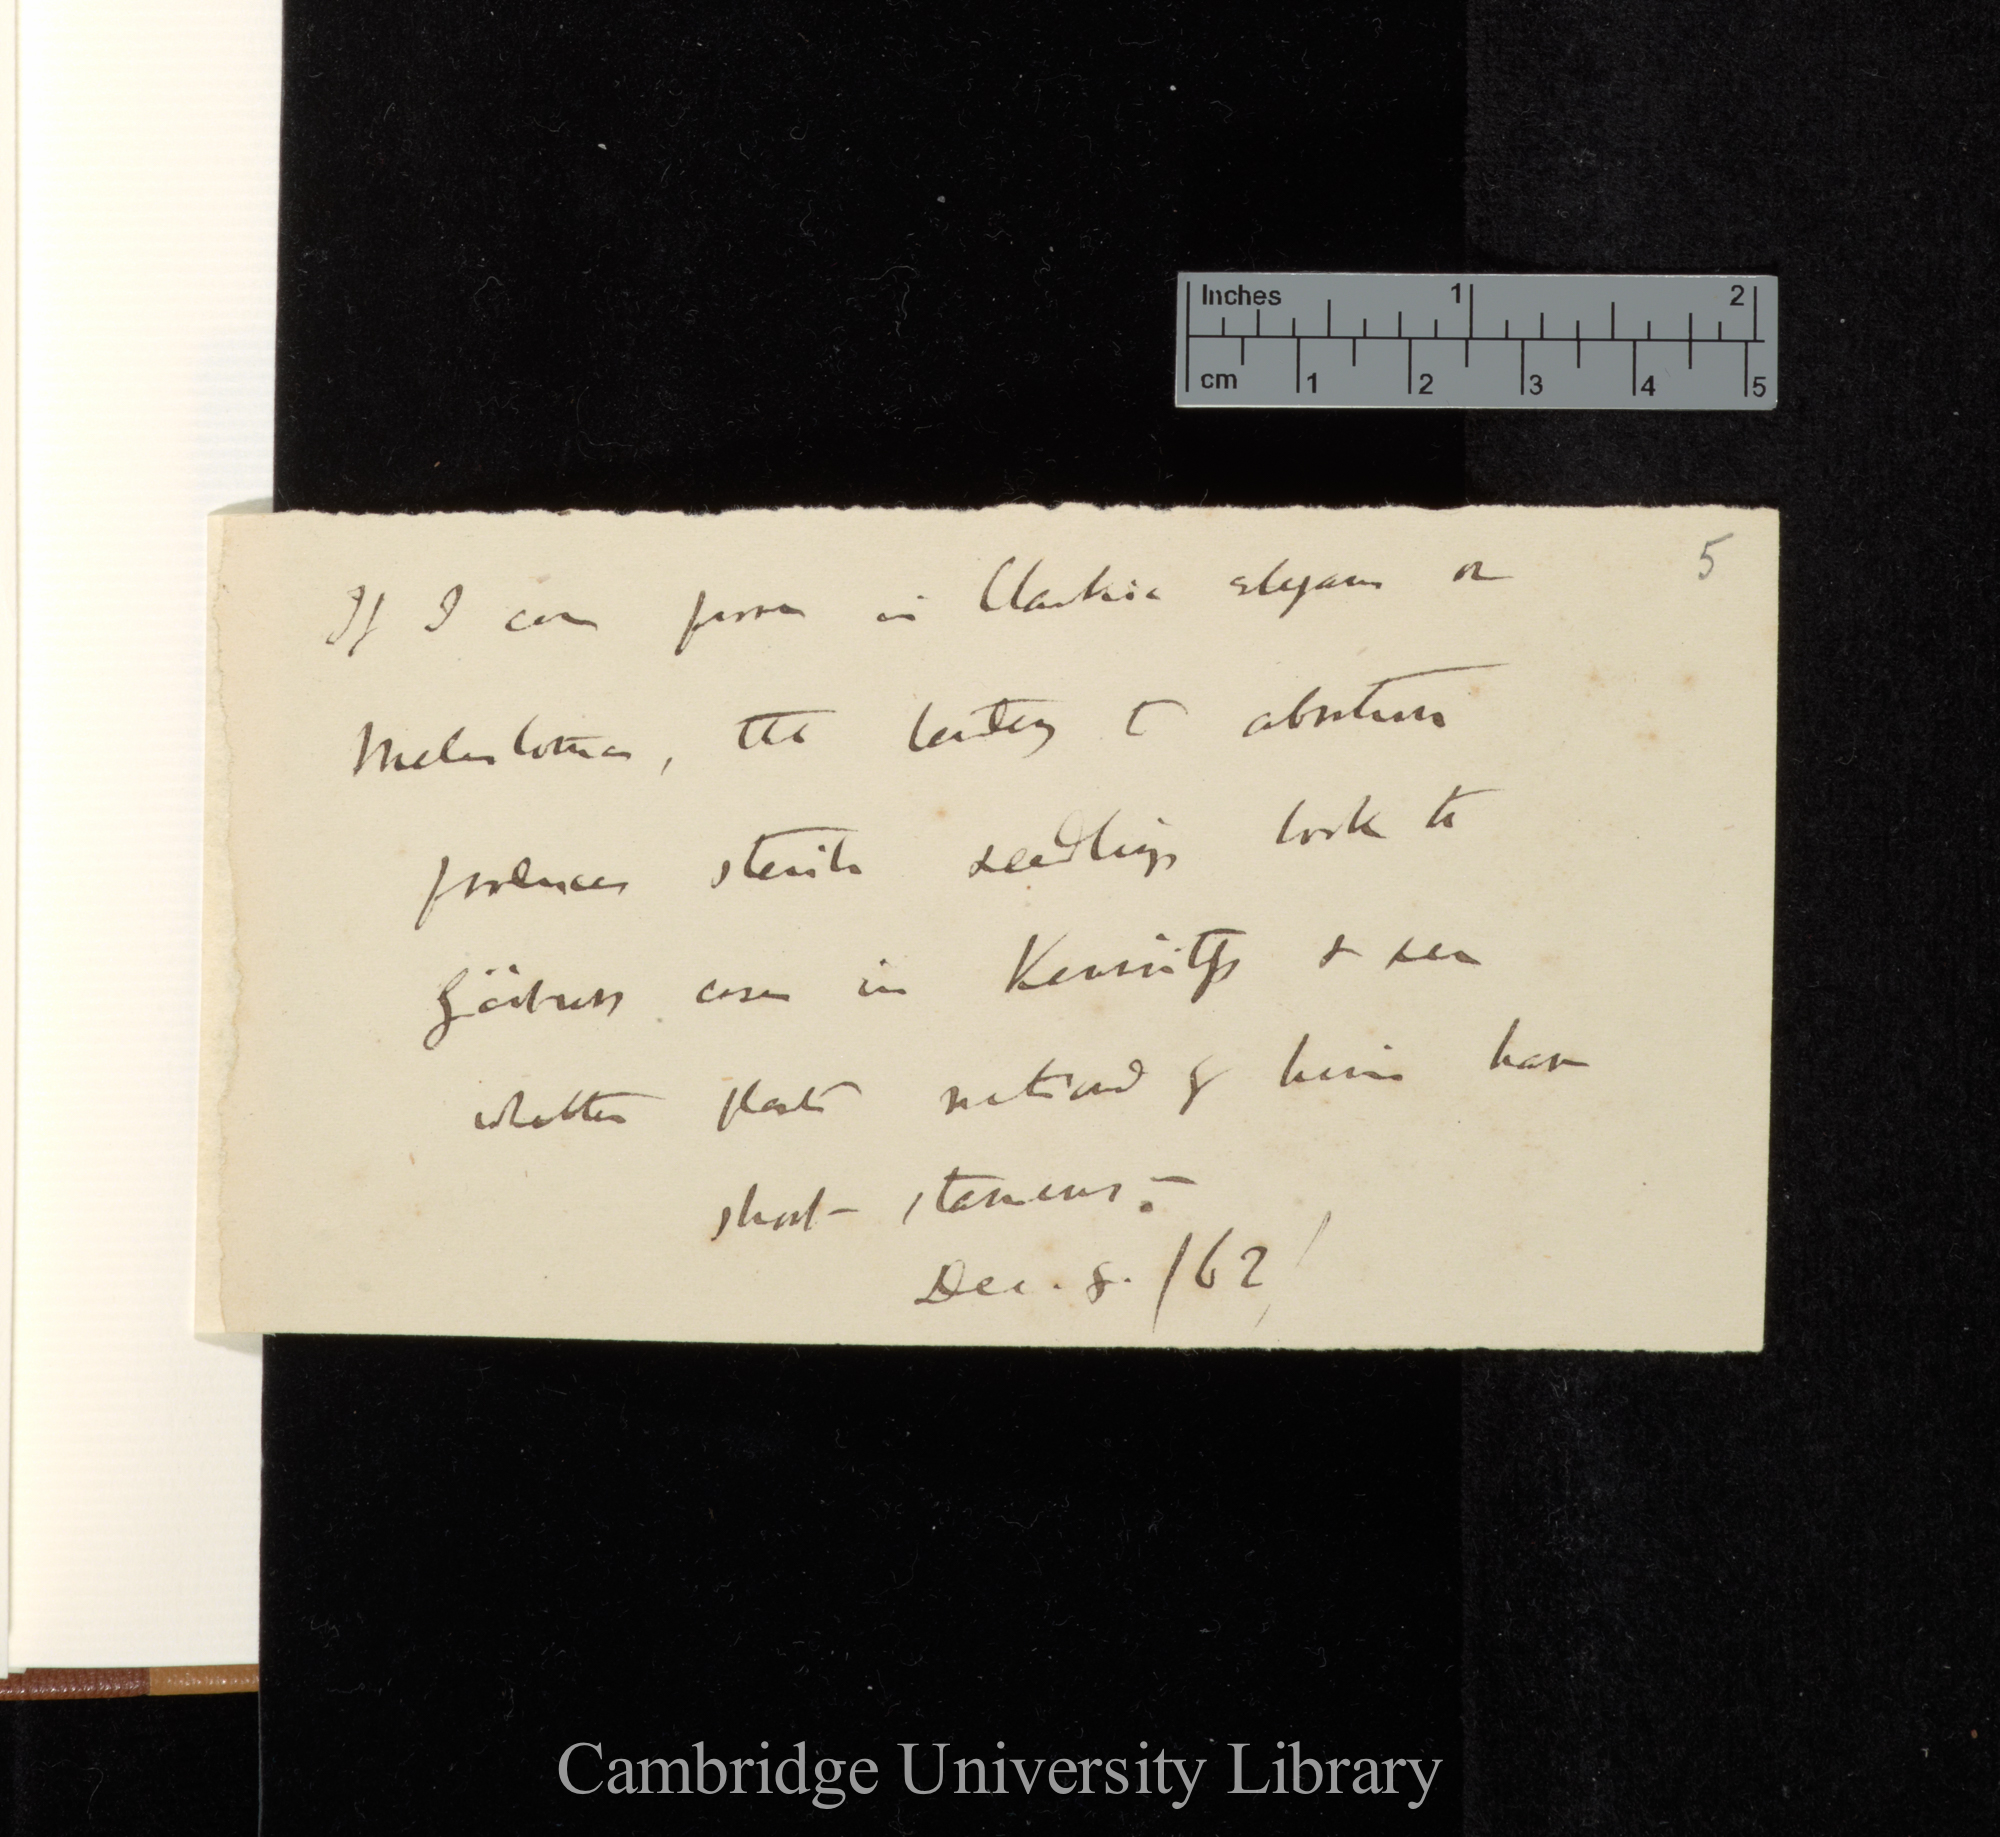 Inches 1 2
cm 1 2 3 4 5
5
If I can prove in Clarkia elegans or
Melastomas, the tendency to abortion
produces sterile seedlings look to
Gärtners case in & see
whether plants of have
short stamens.—
Dec. 8. /62/
Cambridge University Library